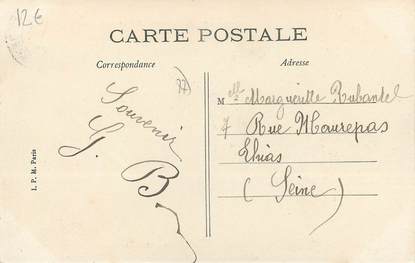 12€
CARTE POSTALE
Correspondance
Adresse
77
Souvenir
G. B
I. P. M. Paris
M elle Marguerite Rubantel
7 Rue Maurepas
Thiais
(Seine)